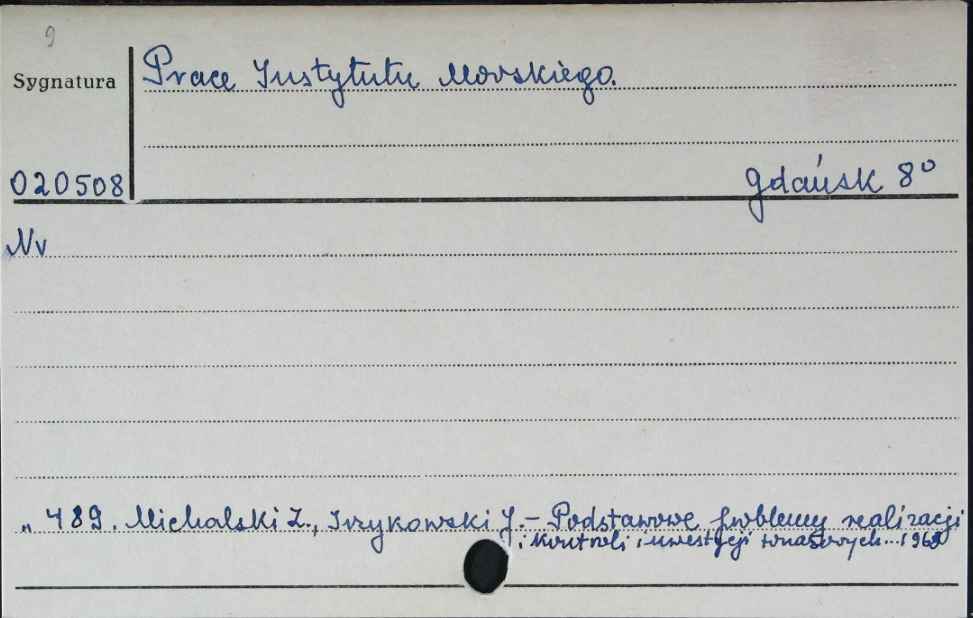 9
Sygnatura
Prace Instytutu Morskiego.
020508
Gdańsk 8º
Nr
„ 489. Michalski Z., Irzykowski J. – Podstawowe problemy realizacji
i kontroli inwestycji tonażowych...1969